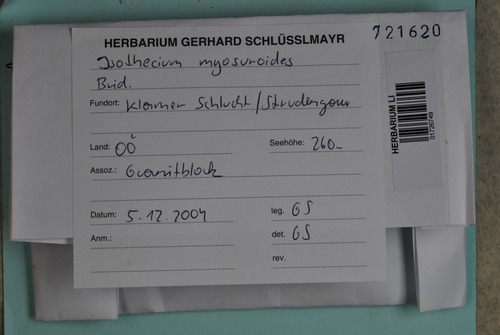 HERBARIUM GERHARD SCHLÜSSLMAYR
721620
Isothecium myosuroides
Brid.
Fundort: Klamer Schlucht/Strudengau
Land: OÖ
Seehöhe: 260-
Assoz.: Granitblock
Datum: 5.12.2004
leg. GS
Anm.:
det. GS
rev.
HERBARIUM LI